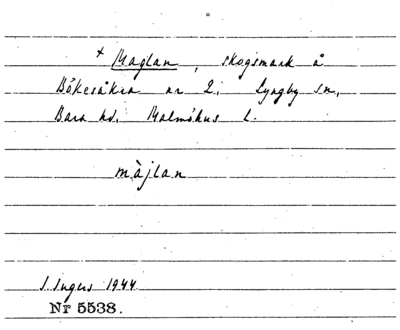 + Maglan, skogsmark å
Bökesåkra nr 2, Lyngby sn,
Bara hd. Malmöhus l.
màjlan
I. Ingers 1944
Nr 5538.